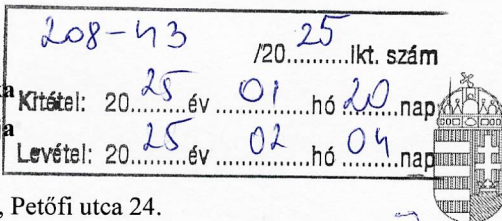 208-43 /20 25 ikt. szám
Kitétel: 20 25 év 01 hó 20 nap
Levétel: 20 25 év 02 hó 04 nap
, Petőfi utca 24.